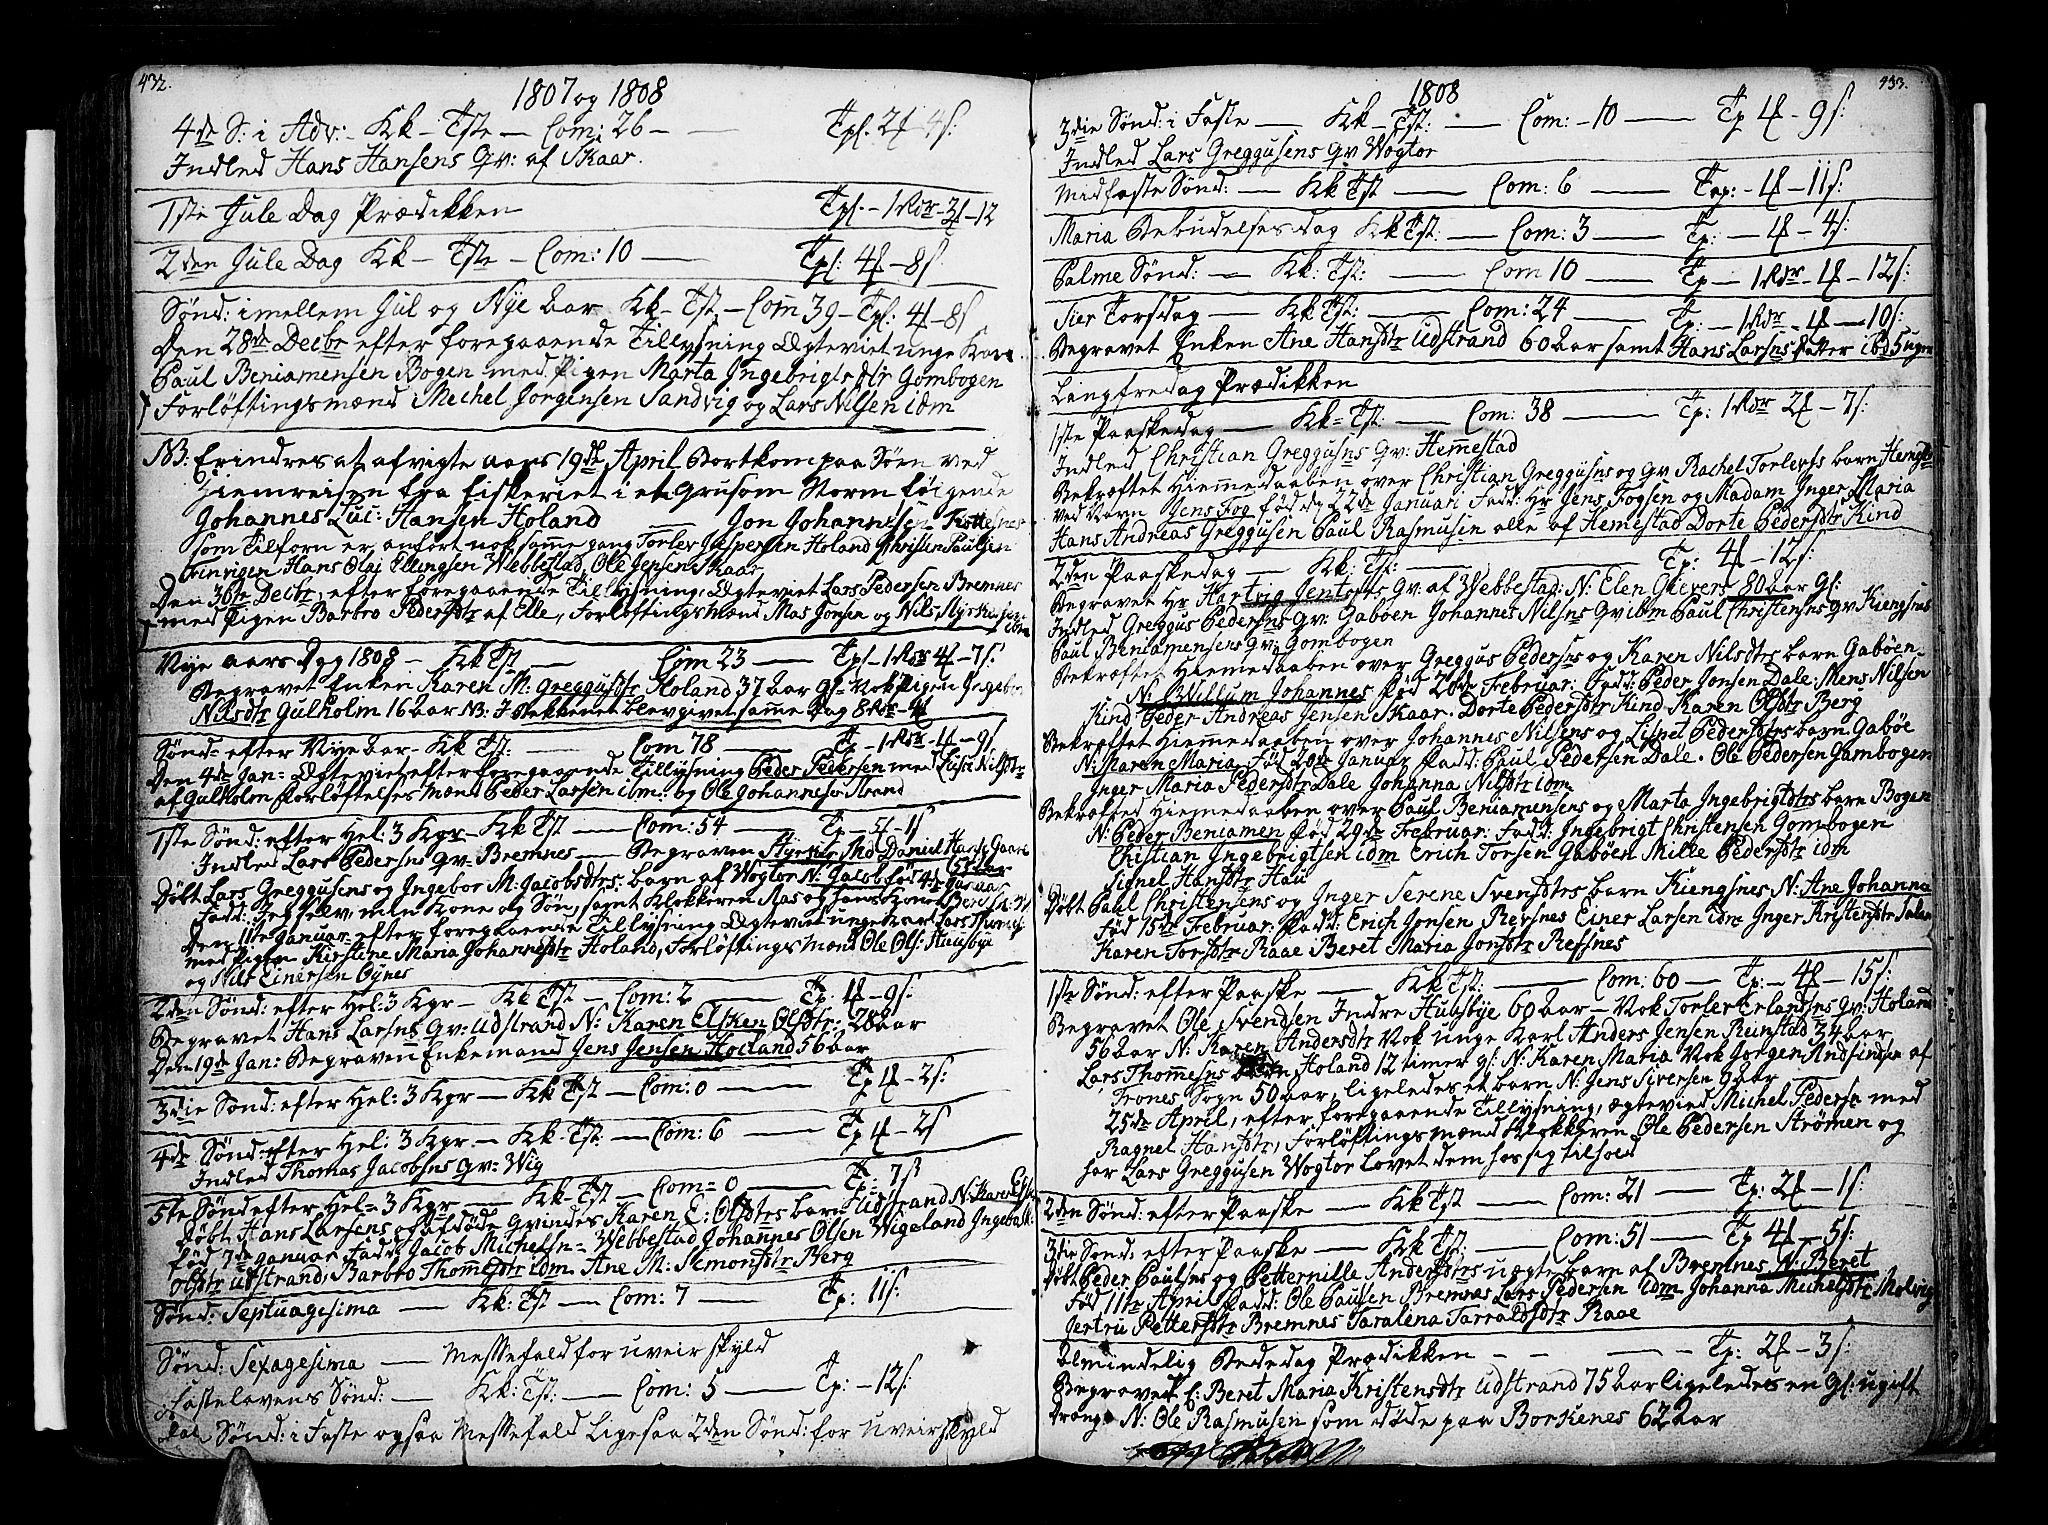 432.
1807 og 1808
4de S: i Adv: - Kk - Tste - Com: 26 - Tpl. 2 - 4 s:
Indled Hans Hansens Qv: af Skaar.
1ste Jule Dag Prædikken Tpl. - 1 Rdr - 3 - 12
2den Jule Dag Kk - Tste - Com: 10 Tpl: 4 - 8 s
Sønd: imellem Jul og Nye Aar Kk - Tst. - Com 39 - Tpl: 4 - 8 s
Den 28de Decbr efter foregaaende Tillysning Ægteviet unge Karl
Paul Beniamensen Bogen med Pigen Marta Ingebrigts dtr Gombogen
Forløftingsmænd Mechel Jørgensen Sandvig og Lars Nilsen idm
NB: Erindres at afvigte aars 19de April Bortkom paa Søen ved
Hiemreisen fra fiskeriet i en Grusom Storm følgende
Johannes Luc: Hansen Holand - Jon Johannesen Trottesnes
som Tilforn er anført nok samme gang Torler Jespersen Holand Christen Paulsen
Finvigen Hans Olai Ellingsen Webbestad, Ole Jensen Skaar
Den 30te Decbr, efter foregaaende Tillysning: Ægteviet Lars Pedersen Bremnes
med Pigen Barbro Pedersdtr af Elle, Forløftingsmænd Mas Jonsen og Nils Hyrkusen
idm
Nye aars Dag 1808 - Kk Tst - Com 23 - Tpl - 1 Rdr 4 - 7 s:
Begravet Enken Karen M: Greggusdtr Holand 37 Aar gl - Nok Pigen Ingebor
Nilsdtr Gulholm 16 aar NB: I Bekkenet blev givet samme Dag 8 Rdr - 4
Sønd: efter Nye Aar - Kk Tst: - Com 78 - Tp - 1 Rdr - 4 - 9 s
Den 4de Jan: Ægteviet efter foregaaende Tillysning Peder Pedersen med Lusi Nilsdtr
af Gulholm Forløftelses mænd Peder Larsen idm: og Ole Johannesen Strand
1ste Sønd: efter Hel: 3 Kgr - Kk Tst - Com: 54 - Tp - 5 - 1 s
Indled Lars Pedersns Qv: Bremnes - Begraven
Døbt Lars Greggusens og Ingebor M: Jacobsdtrs: barn af Wogtor N: Jacob fød 4de Januar
Fadd: Jeg selv, min Kone og Søn, samt Klokkeren Aas og hans Kone
Den 11te Januar efter foregaaende Tillysning Ægteviet unge Karl Lars
med Pigen Kirstine Maria Johannesdtr Holand, Forløftingsmænd Ole Ols: Huusbye
og Nils Einersen Øynes
2den Sønd: efter Hel: 3 Kgr - Kk Tst - Com: 2 - Tp: 4 - 9 s:
Begravet Hans Larsns Qv: Udstrand N: Karen Elsken Olsdtr: 28 aar
Den 19de Jan: Begraven Enkemand Jens Jensen Holland 56 aar
3die Sønd: efter Hel: 3 Kgr - Kk Tst - Com: 0 - Tp 4 - 2 s:
4de Sønd: efter Hel: 3 Kgr - Kk - Tst: - Com: 6 - Tp 4 - 2 s
Indled Thomas Jacobsns Qv: Wig
5te Sønd efter Hel: 3 Kgr - Kk - Tst - Com = 0 - Tp = 7 s
Døbt Hans Larsens og afdøde Qvindes Karen E: Olsdtrs barn Udstrand N: Karen
fød 7de Januar Fadr: Jacob Michelsn = Webbestad Johannes Olsen Wigeland Ingebor
Olsdtr Udstrand, Barbro Thomesdtr idm. Ane M: Simonsdtr Berg
Sønd: Septuagesima - Kk: Tst - Com: 7 - Tp: 11 s:
Sønd: Sexagesima - Messefald for uveir skyld
Fastelavens Sønd: - Kk: Tst: - Com: 5 - Tp: - 12 s:
Sønd: i Faste ogsaa Messefald Ligesaa 2den Sønd: for uveirskyld
433.
1808
3die Sønd: i Faste - Kk - Tst: - Com: - 10 - Tp 4 - 9 s:
Indled Lars Greggusens Qv Wogtor
Midfaste Sønd: - Kk Tst - Com: 6 - Tap: - 4 - 11 s:
Maria Bebudelses dag Kk Tst: - Com: 3 - Tp: - 4 - 4 s:
Palme Sønd: - Kk: Tst: - Com 10 - Tp - 1 Rdr - 4 - 12 s:
Sier Torsdag - Kk Tst: - Com: 24 - Tp: - 1 Rdr - 4 - 10 s:
Begravet Enken Ane Hansdtr Udstrand 60 Aar samt Hans Larsns Datter ibd 5 uger
Langfredag Prædikken
1ste Paaskedag - Kk = Tst: - Com: 38 - Tp: 1 Rdr 2 - 7 s:
Indled Christian Greggusns Qv: Hemestad
Bekræftet Hiemmedaaben over Christian Greggusns og Qv Rachel Torlevsd barn
ved Navn Jens Fog fød dg 22de Januari Fadd: Hr Jens Fogsen og Madam Inger Maria
Hans Andreas Greggusen Paul Rasmusen alle af Hemestad Dorte Pedersdtr Kind
2den Paaskedag - Kk: Tst: - Tp: 4 - 12 s:
Begravet Hr Hartvig Jentofts Qv: af Webbestad: N: Elen Glievers 80 Aar gl:
Indled Greggus Pedersns Qv: Gabøen Johannes Nilsns Qv idm Paul Christensns Qv Kiengsnes
Paul Beniamensens Qv: Gombogen
Bekræftet Hiemmedaaben over Greggus Pedersns og Karen Nilsdtrs barn Gabøen
N: Willum Johannes fød 20de Februar: Fadd: Peder Jonsen Dale: Mens Nilsen
Kind Peder Andreas Jensen Skaar. Dorte Pedersdtr Kind Karen Olsdtr Berg
Bekræftet Hiemmedaaben over Johannes Nilsens og Lisbet Pedersdtrs barn Gabøe
N: Maren Maria Fød 20de Januar Fadd: Paul Pedersen Dale. Ole Pedersen Gambogen
Inger Maria Pedersdtr Dale Johanna Nilsdtr idm
Bekræfted Hiemmedaaben over Paul Beniamensens og Marta Ingebrigtdtrs barn Bogen
N: Peder Beniamen fød 29de Februar: Fadd: Ingebrigt Christensen Gombogen
Christian Ingebrigtsen idm Erich Torsen Gabøen Mille Pedersdtr idm
Signel Hansdtr Hau
Døbt Paul Christensens og Inger Serene Svensdtrs barn Kiengsnes N: Ane Johanna
Fød 15de Februar: Fadd: Erich Jonsen Refsnes Einer Larsen idm Inger Kristensdtr
Karen Torsdtr Raae Beret Maria Jonsdtr Refsnes
1ste Sønd: efter Paaske - Kk Tst: - Com: 60 - Tp: - 4 - 15 s:
Begravet Ole Svendsen Indre Huusbye 60 Aar - Nok Torler Erlandsns Qv: Holand
56 Aar N: Karen Andersdtr Nok unge Karl Anders Jensen Reinstad 34 Aar
Lars Thomesns barn Holand 12 timer gl: N: Karen Maria Nok Jørgen Andsindsen af
Trones Sogn 50 Aar, ligeledes et barn N: Jens Siversen 9 Aar
25de April, efter foregaaende Tillysning, ægtevied Michel Pedersn med
Ragnel Hansdtr, Forløftingsmænd Klokkeren Ole Pedersen Strømen og
har Lars Greggusen Wogtor lovet dem hos sig tilhold
2den Sønd: efter Paaske - Kk Tst - Com: 21 - Tp: 2 - 1 s:
3die Sønd: efter Paaske - Kk Tst: - Com: 51 - Tp 4 - 5 s:
Døbt Peder Paulsns og Petternille Andersdtrs uægte barn af Bremnes N: Beret
Fød 11te April Fadd: Ole Paulsen Bremnes Lars Pedersen idm Johanna Michelsdtr Melvig
Jertru Pettersdtr Bremnes Taralena Tarraldsdtr Raae
Almindelig Bededag Prædikken - - Tp: 2 - 3 s:
Begravedt E: Beret Maria Kristensdtr Udstrand 75 Aar ligeledes en gl: ugift
Dreng N: Ole Rasmusen som døde paa Borkenes 62 Aar